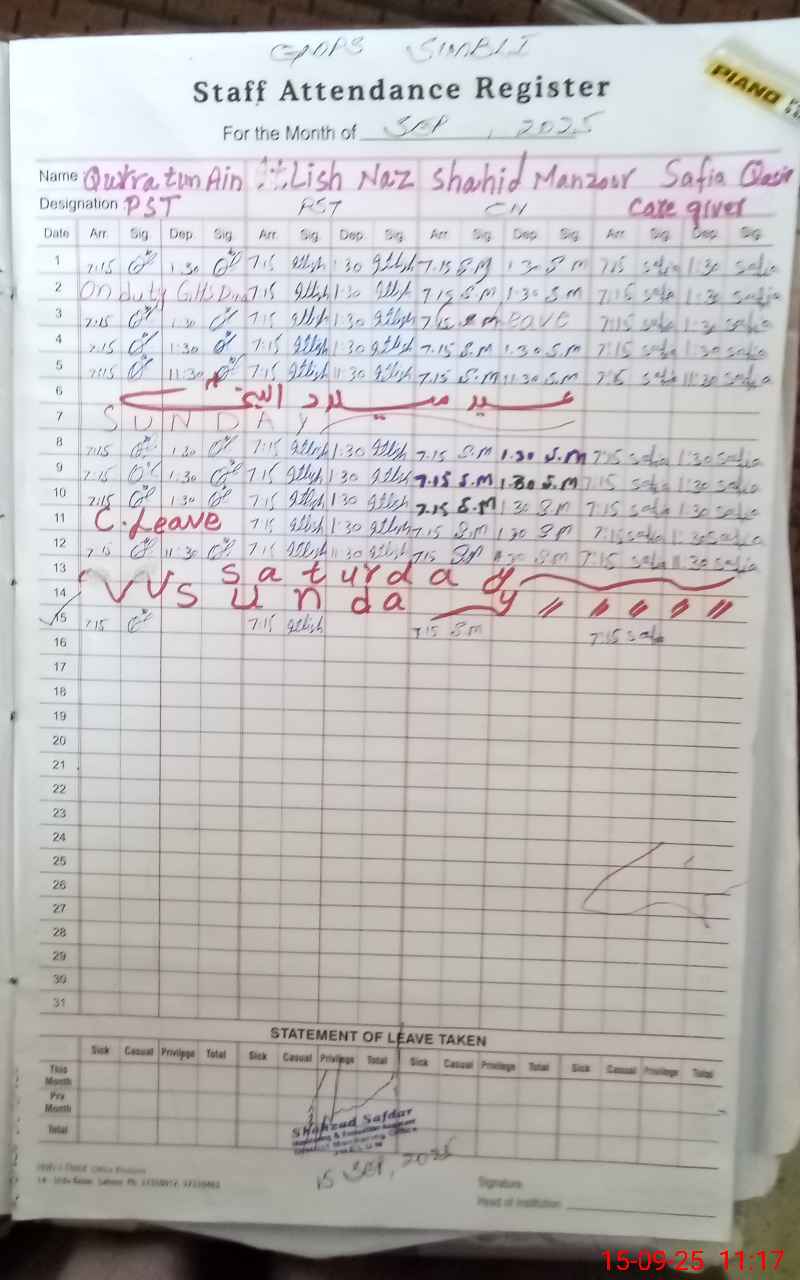 GOPS SIMBLI
PIANO
Staff Attendance Register
For the Month of SEP, 2025
Name Qurratun Ain Lish Naz Shahid Manzoor Safia
Designation PST PST CH Care giver
Date Arr. Sig. Dep. Sig. Arr. Sig. Dep. Sig. Arr. Sig. Dep. Sig. Arr. Sig. Dep. Sig.
1 7:15 1:30 7:15 1:30 7:15 S.M 1:30 S.M 7:15 safia 1:30 safia
2 On duty 7:15 1:30 7:15 S.M 1:30 S.M 7:15 safia 1:30 safia
3 7:15 1:30 7:15 1:30 7:15 leave 7:15 safia 1:30 safia
4 7:15 1:30 7:15 1:30 7.15 S.M 1.30 S.M 7:15 safia 1:30 safia
5 7:15 11:30 7:15 11:30 7.15 S.M 11.30 S.M 7:15 safia 11:30 safia
6 عید میلاد النبی
7 SUNDAY
8 7:15 1:30 7:15 1:30 7.15 S.M 1.30 S.M 7:15 safia 1:30 safia
9 7:15 1:30 7:15 1:30 7.15 S.M 1.30 S.M 7:15 safia 1:30 safia
10 7:15 1:30 7:15 1:30 7.15 S.M 1:30 S.M 7:15 safia 1:30 safia
11 C.Leave 7:15 1:30 7:15 S.M 1:30 S.M 7:15 safia 1:30 safia
12 7:15 11:30 7:15 11:30 7:15 S.M 11:30 S.M 7:15 safia 11:30 safia
13 Saturday
14 Sunday 〃 〃 〃 〃 〃
15 7:15 7:15 7:15 S.M 7:15 safia
16
17
18
19
20
21
22
23
24
25
26
27
28
29
30
31
STATEMENT OF LEAVE TAKEN
Sick Casual Privilege Total Sick Casual Privilege Total Sick Casual Privilege Total Sick Casual Privilege Total
This Month
Pre Month
Total
Shahzad Safdar
15 SEP, 2025
Signature
Head of Institution
15-09-25 11:17